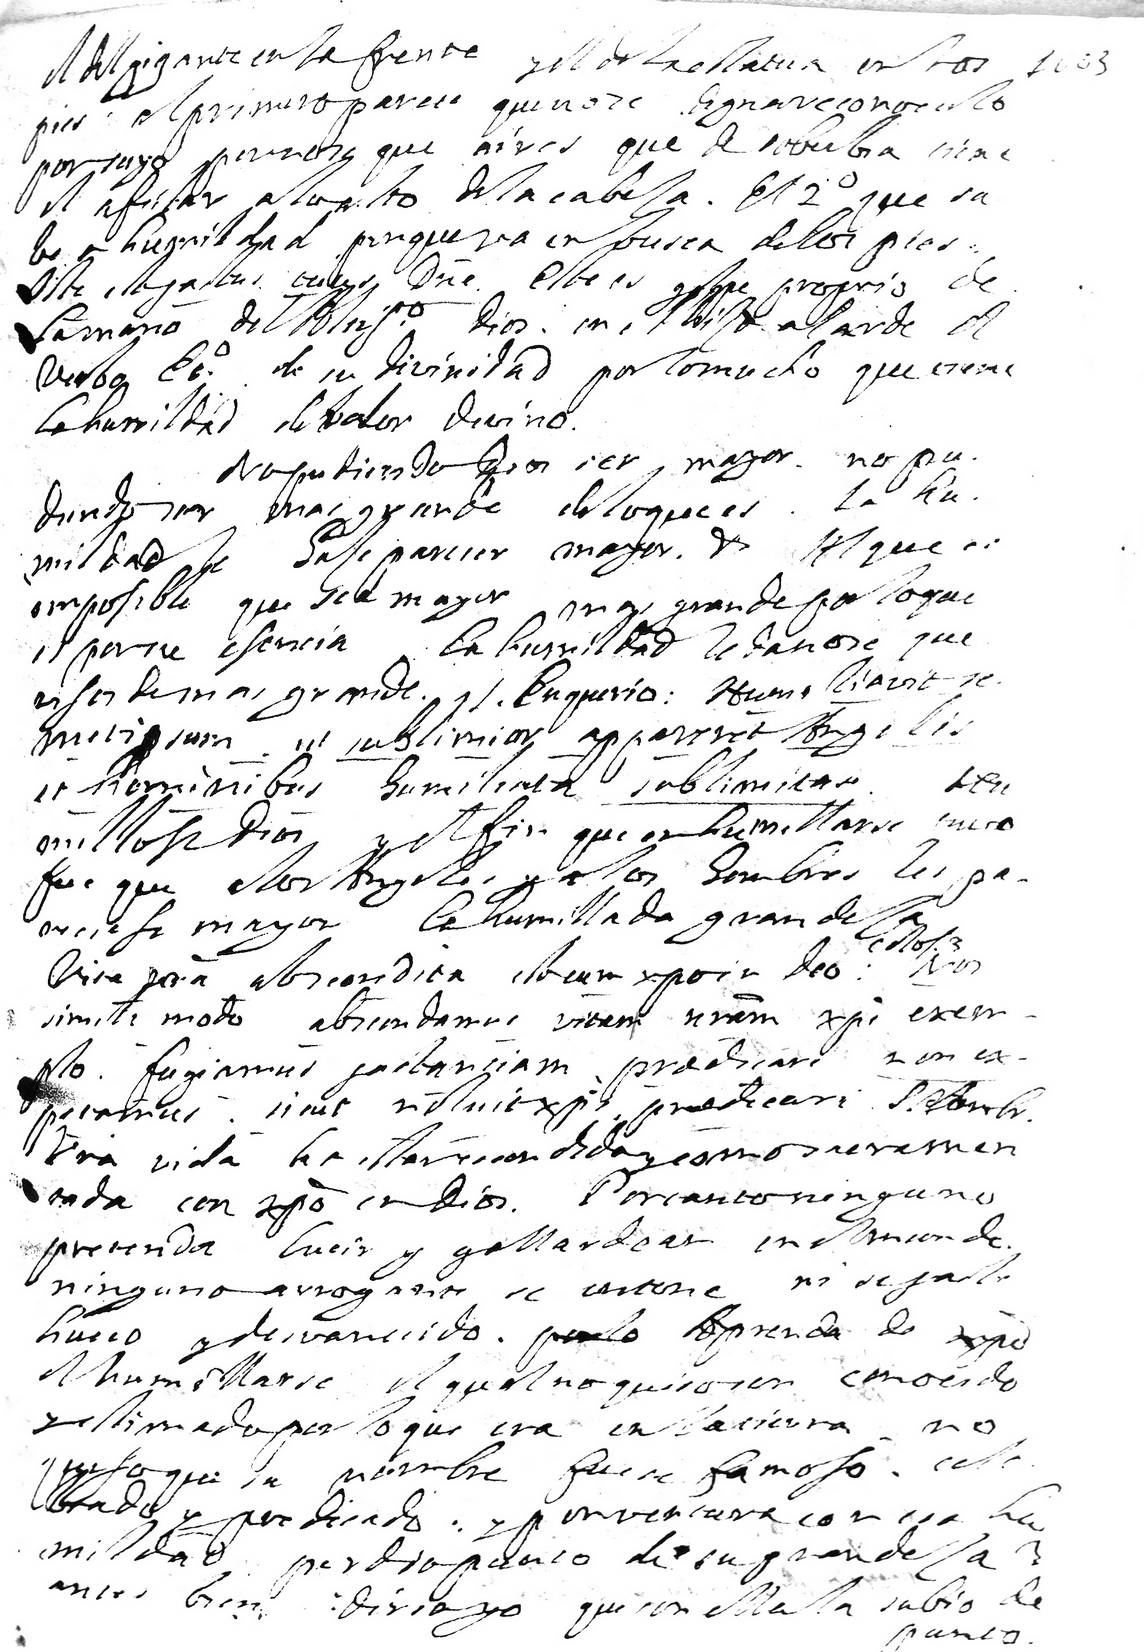 el del gigante en la frente y el de la estatua en los
pies el primero parece que no se digna reconocerlo
por suyo pues no se que aires que de sobervia tiene
el afectar a lo alto de la cabessa. El 2º que sa
be a humildad porque va en busca de los pies.
este es golpe proprio de
la mano del Dios. en el alarde el
Verbo Eº de su divinidad por lo mucho que tiene
la humildad de valor divino.
No pudiendo Dios ser mayor. no pu.
diendo ser mas grande de lo que es. la hu.
mildad le hase parecer mayor. Al que es
imposible que sea mayor mas grande por lo que
es por su esencia la humildad le da no se que
visos de mas grande. Euquerio: Humiliavit se
metipsum ut sublimior appareret Angelis
et hominibus humiliata sublimitas.
millose Dios y el fin que en humillarse tuvo
fue que a los Angeles y a los hombres les pa-
reciese mayor la humillada grandessa
Colos. 3
Vita vrã abscondita est cum xpo in Deo: Nos
simili modo abscondamus vitam nrãm xpi exem-
plo. fugiamus jactantiam prædicari non ex-
petamus sicut noluit xps prædicari S. Ambr.
Vrã vida ha de estar escondida y como sacramen
tada con xpõ en Dios. Por tanto ninguno
pretenda lucir y gallardear en el mundo.
ninguno arrogante se entone ni se jacte
hueco y desvanecido. aprenda de xpõ
el humillarse el qual no quiso ser conocido
y estimado por lo que era en la tierra no
quiso que su nombre fuese famoso. cele
brado y predicado. y por ventura con esa hu
mildad perdio punto de su grandessa?
antes bien diria yo que con ella la subio de
punto.